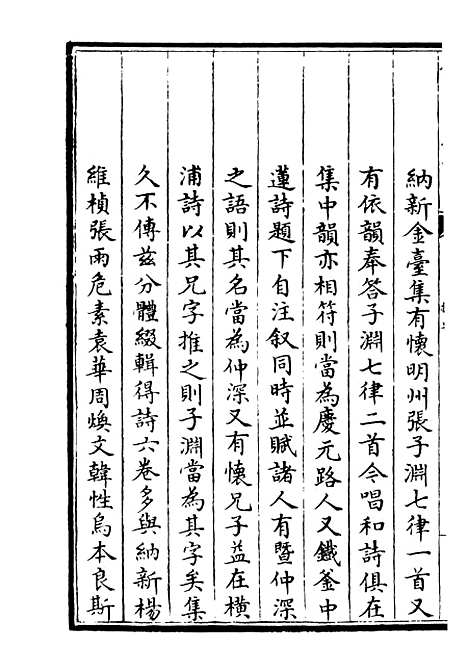 納新金臺集有懷明州張子淵七律一首又
有依韻奉答子淵七律二首今唱和詩俱在
集中韻亦相符則當為慶元路人又鐵釜中
蓮詩題下自注叙同時並賦諸人有暨仲深
之語則其名當為仲深又有懷兄子益在横
浦詩以其兄字推之則子淵當為其字矣集
久不傳兹分體綴輯得詩六卷多與納新楊
維楨張雨危素袁華周煥文韓性烏本良斯